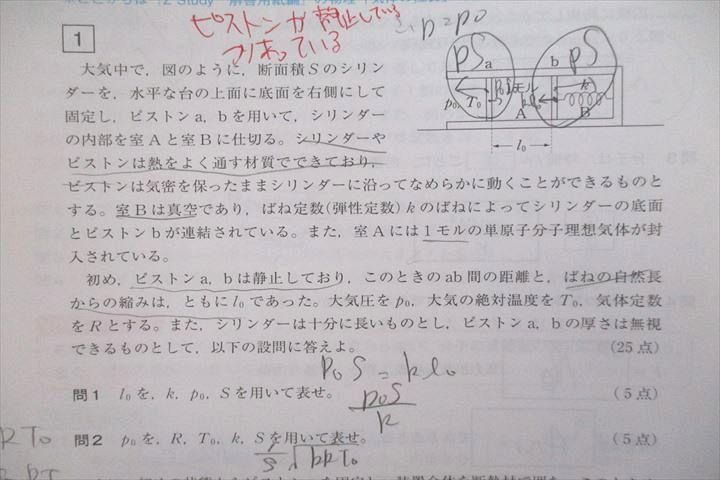 ピストンが静止している
つりあっている
∴ p = p0
1
大気中で，図のように，断面積Sのシリン
ダーを，水平な台の上面に底面を右側にして
固定し，ピストンa，bを用いて，シリンダー
の内部を室Aと室Bに仕切る。シリンダーや
ピストンは熱をよく通す材質でできており，
ピストンは気密を保ったままシリンダーに沿ってなめらかに動くことができるものと
する。室Bは真空であり，ばね定数(弾性定数)kのばねによってシリンダーの底面
とピストンbが連結されている。また，室Aには1モルの単原子分子理想気体が封
入されている。
初め，ピストンa，bは静止しており，このときのab間の距離と，ばねの自然長
からの縮みは，ともにl0であった。大気圧をp0，大気の絶対温度をT0，気体定数
をRとする。また，シリンダーは十分に長いものとし，ピストンa，bの厚さは無視
できるものとして，以下の設問に答えよ。
(25点)
pS
a
b
pS
p0, T0
1モル
A
k
B
l0
p0S = kl0
問1 l0を，k，p0，Sを用いて表せ。
(5点)
p0S
k
問2 p0を，R，T0，k，Sを用いて表せ。
(5点)
1/S √kRT0
RT0